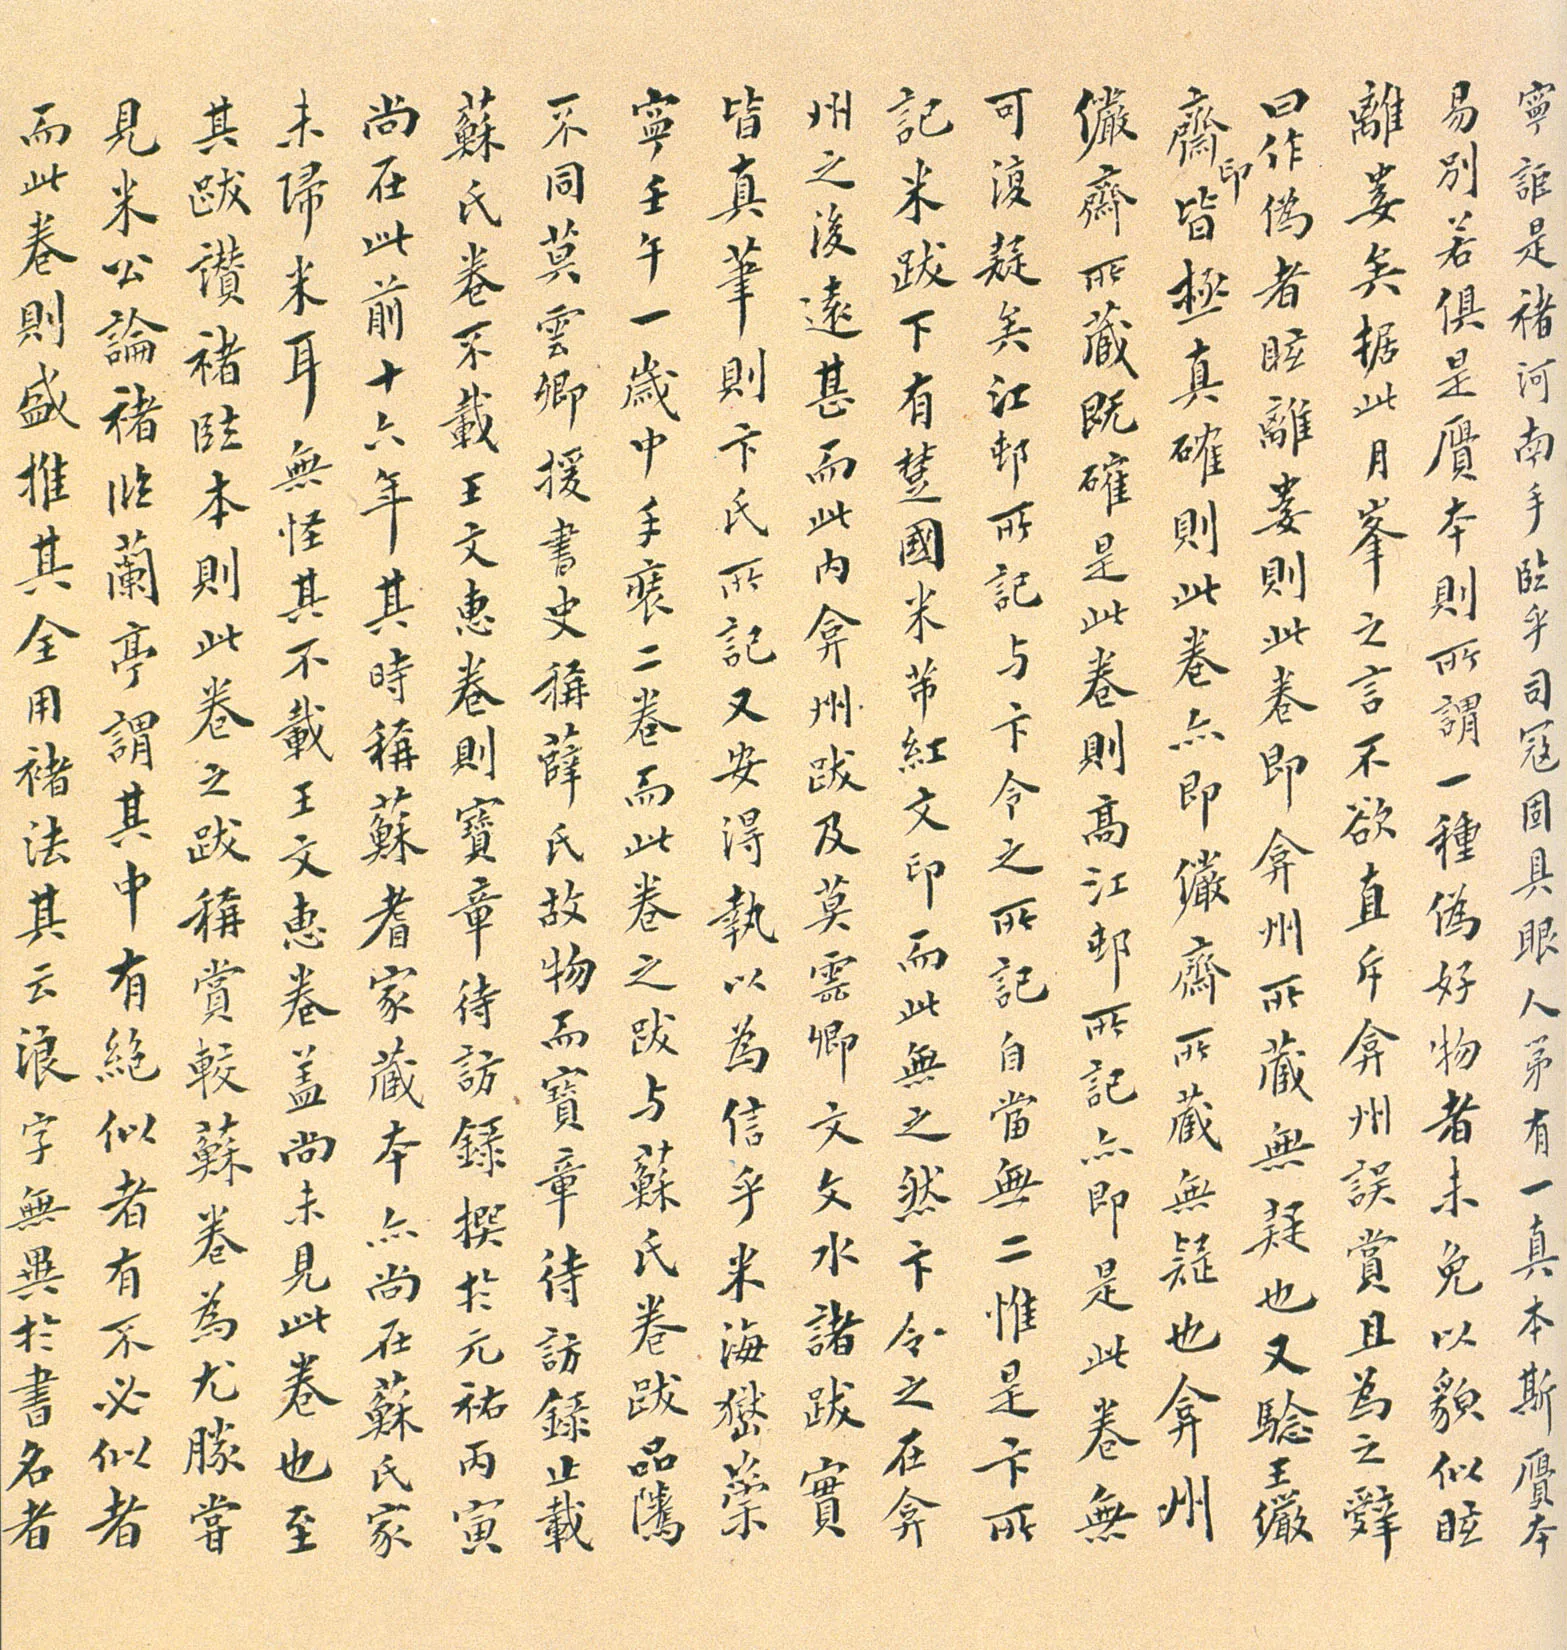 寧詎是褚河南手臨乎司寇固具眼人第有一真本斯贗本
易別若俱是贗本則所謂一種偽好物者未免以貌似眩
離婁矣据此月峯之言不欲直斥弇州誤賞且為之辭
曰作偽者眩離婁則此卷即弇州所藏無疑也又驗王儼
齋印皆極真確則此卷亦即儼齋所藏無疑也弇州
儼齋所藏既確是此卷則高江邨所記亦即是此卷無
可復疑矣江邨所記与卞令之所記自當無二惟是卞所
記米跋下有楚國米芾紅文印而此無之然卞令之在弇
州之後遠甚而此內弇州跋及莫雲卿文文水諸跋實
皆真筆則卞氏所記又安得執以為信乎米海嶽崇
寧壬午一歲中手裝二卷而此卷之跋与蘇氏卷跋品隲
不同莫雲卿援書史稱薛氏故物而寶章待訪錄止載
蘇氏卷不載王文惠卷則寶章待訪錄撰於元祐丙寅
尚在此前十六年其時稱蘇耆家藏本亦尚在蘇氏家
未歸米耳無怪其不載王文惠卷蓋尚未見此卷也至
其跋讚褚臨本則此卷之跋稱賞較蘇卷為尤勝嘗
見米公論褚臨蘭亭謂其中有絕似者有不必似者
而此卷則盛推其全用褚法其云浪字無異於書名者